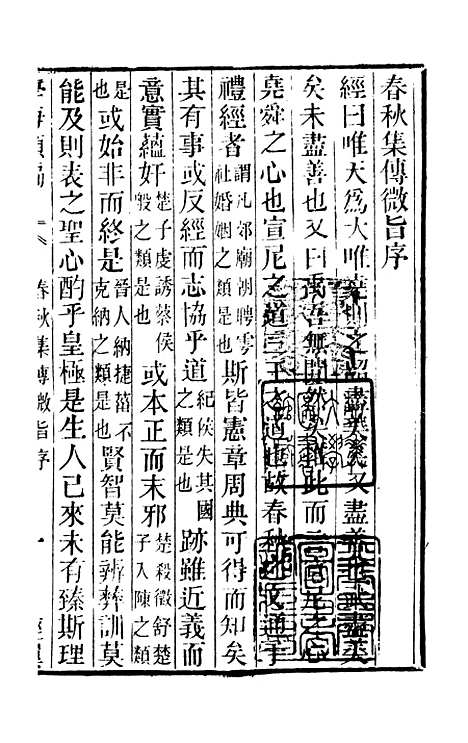 春秋集傳微旨序
經曰唯天為大唯堯則之韶盡美矣又盡善也武盡美
矣未盡善也又曰禹吾無閒然矣推此而言宣尼之心
堯舜之心也宣尼之道三王之道也故春秋之文通于
禮經者謂凡郊廟朝聘雩社婚姻之類是也斯皆憲章周典可得而知矣
其有事或反經而志協乎道紀侯失其國之類是也跡雖近義而
意實蘊奸楚子虔誘蔡侯般之類是也或本正而末邪楚殺徵舒楚子入陳之類
是也或始非而終是晉人納捷菑不克納之類是也賢智莫能辨彝訓莫
能及則表之聖心酌乎皇極是生人已來未有臻斯理
學海類編
春秋集傳微旨序
一
經翼